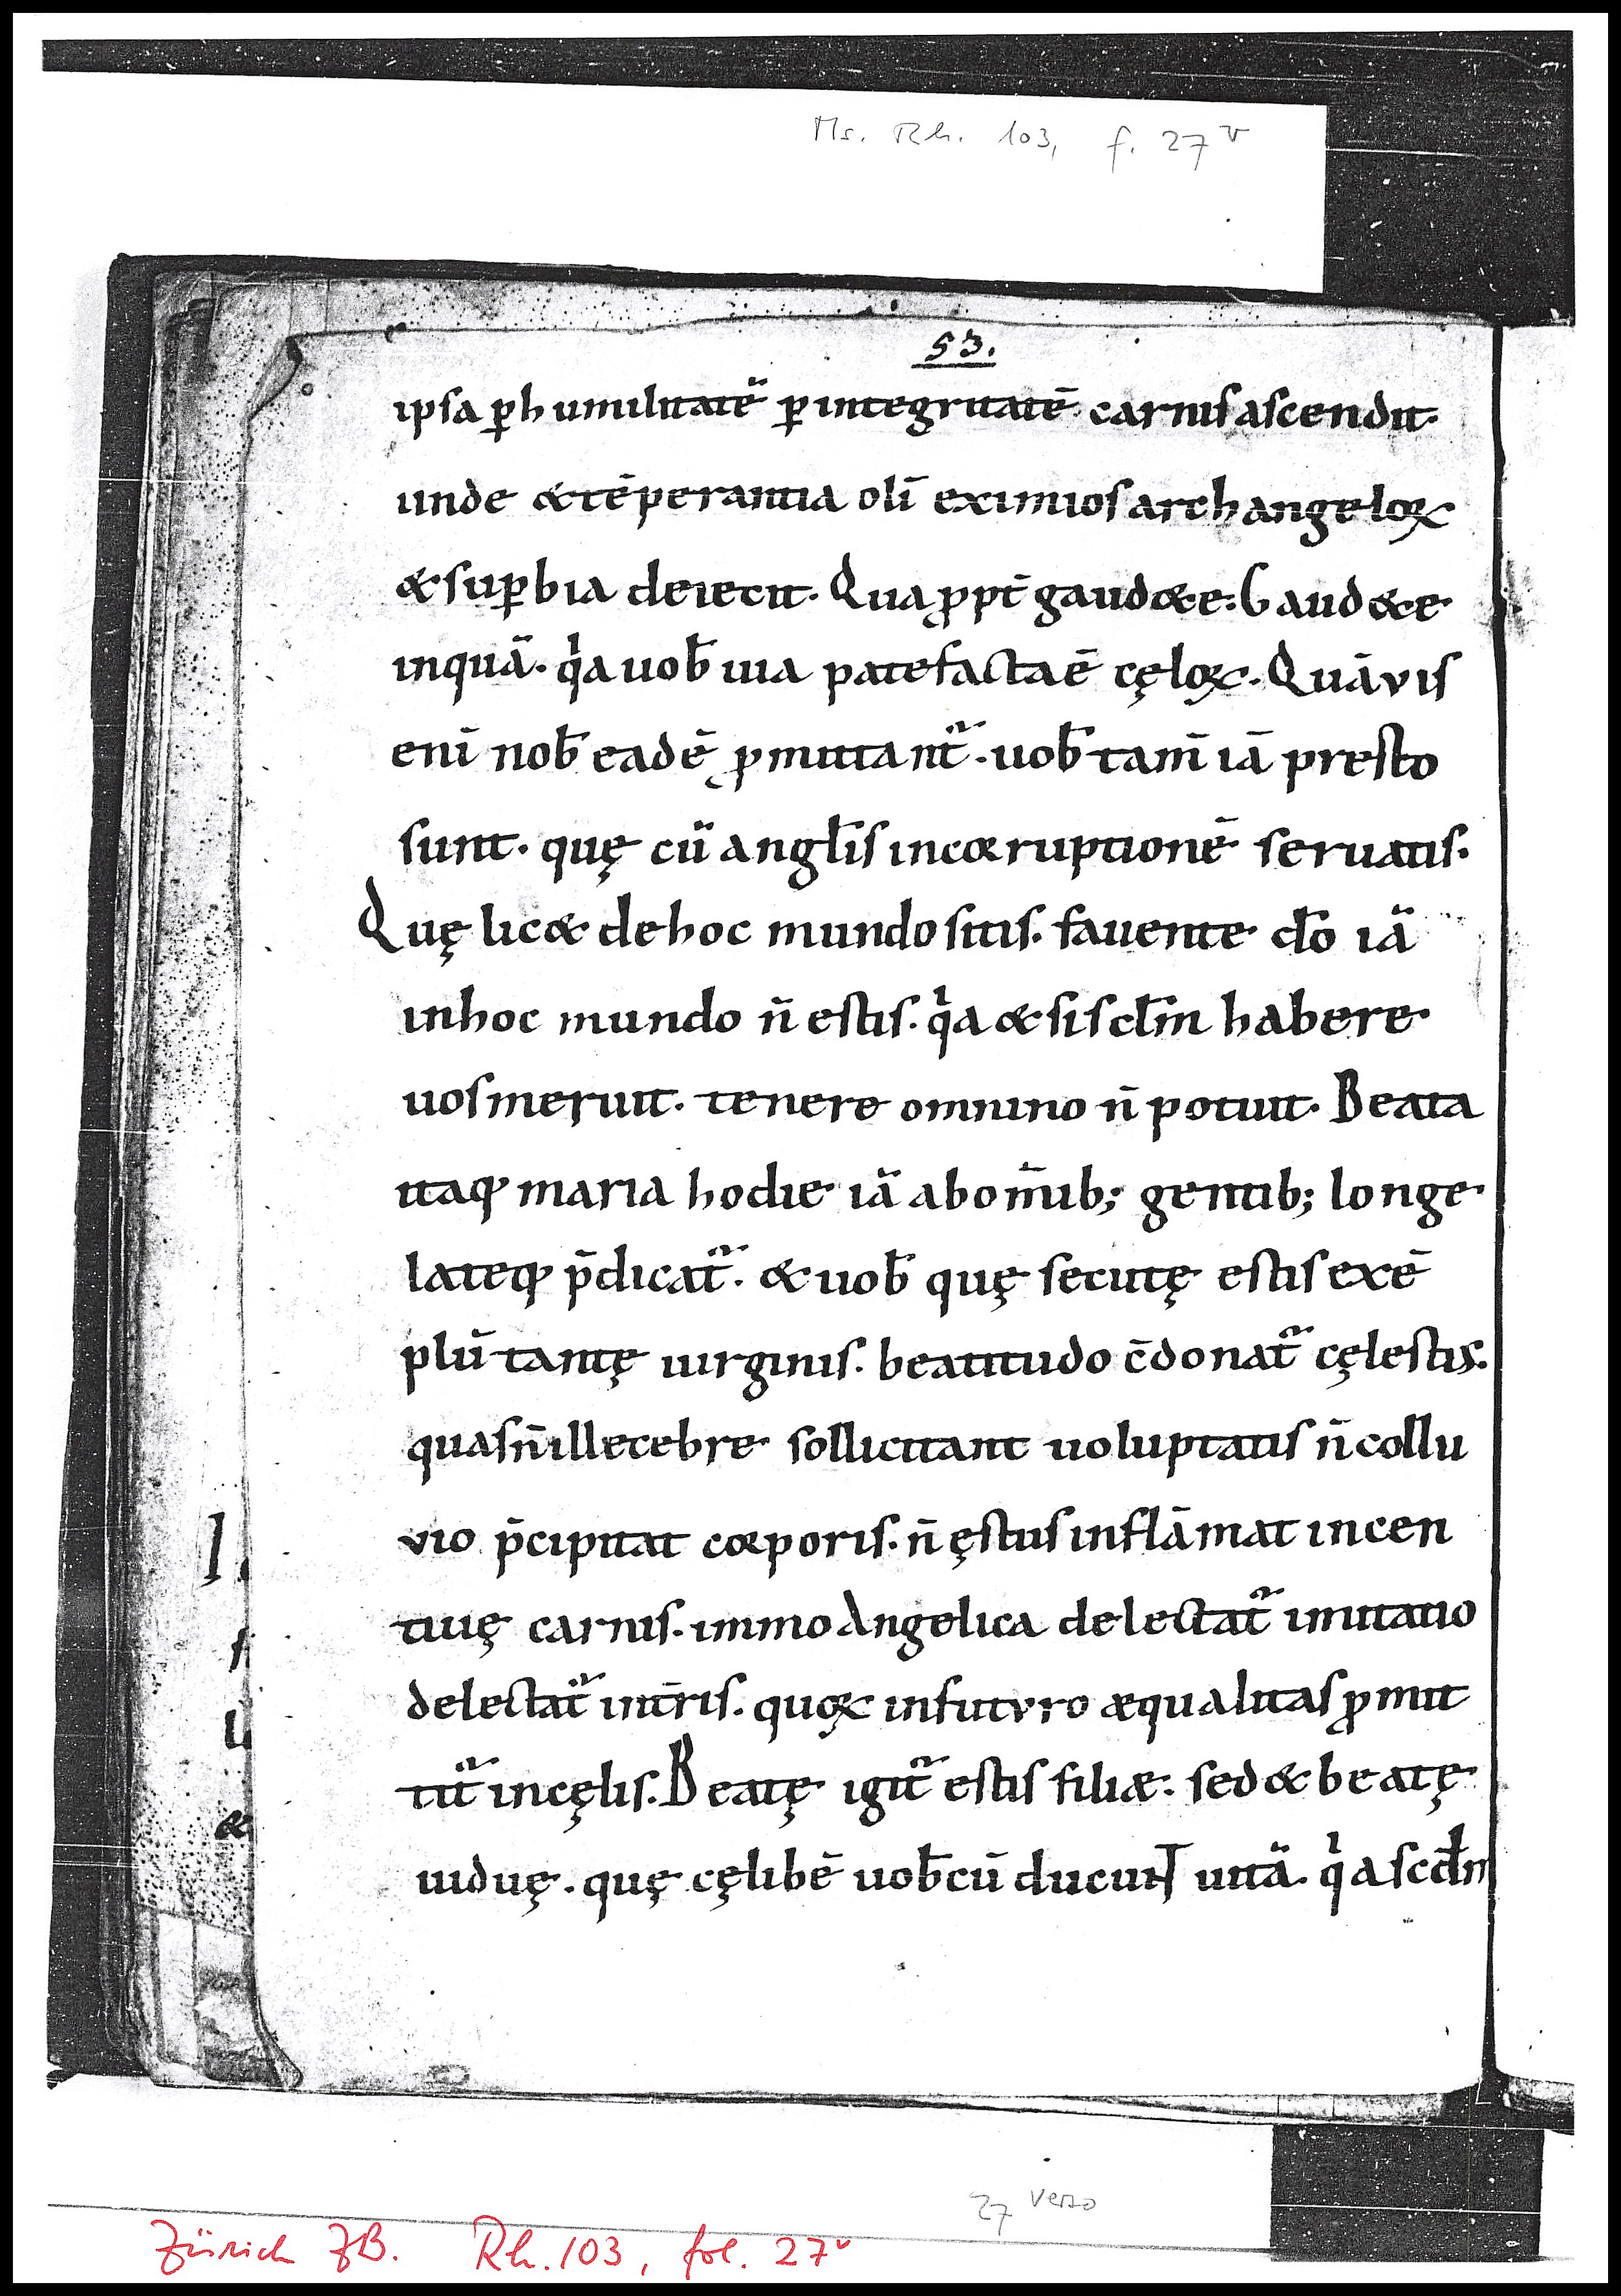 Ms. Rh. 103, f. 27v
53.
ipsa ꝑhumilitatē ꝑ integritatē carnis ascendit.
unde & tēperantia olī eximios archangeloꝝ
& suꝑbia deiecit. Quaꝓpt̄ gaud&e. Gaud&e
inquā. qͥa uob̄ uia patefacta ē cęloꝝ. Quāvis
enī nob̄ eadē ꝓmittant᷑. uob̄ tam̄ iā presto
sunt. quę cū angl̄is incorruptionē seruatis.
Quę lic& de hoc mundo sitis. fauente dō iā
in hoc mundo n̄ estis. qͥa & si scl̄m habere
uos meruit. tenere omnino n̄ potuit. Beata
itaqꝫ maria hodie iā ab om̄ib; gentib; longe
lateqꝫ p̄dicat᷑. & uob̄ quę secutę estis exē
plū tantę uirginis. beatitudo c̄donat᷑ cęlestis.
quas n̄ illecebre sollicitant uoluptatis n̄ collu
vio p̄cipitat corporis. n̄ ęstus inflāmat incen
tiuę carnis. immo Angelica delectat᷑ imitatio
delectat᷑ in tr̄is. quoꝝ in futvro æqualitas ꝓmit
tit᷑ in cęlis. Beatę igit᷑ estis filiæ. sed & beatę
uiduę. quę cęlibē uob̄cū ducunt uitā. qͥa scd̄m
&
27 verso
Zürich ZB. Rh. 103, fol. 27v